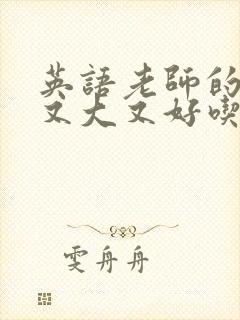 英語老師的
又大又好喫
雯舟舟